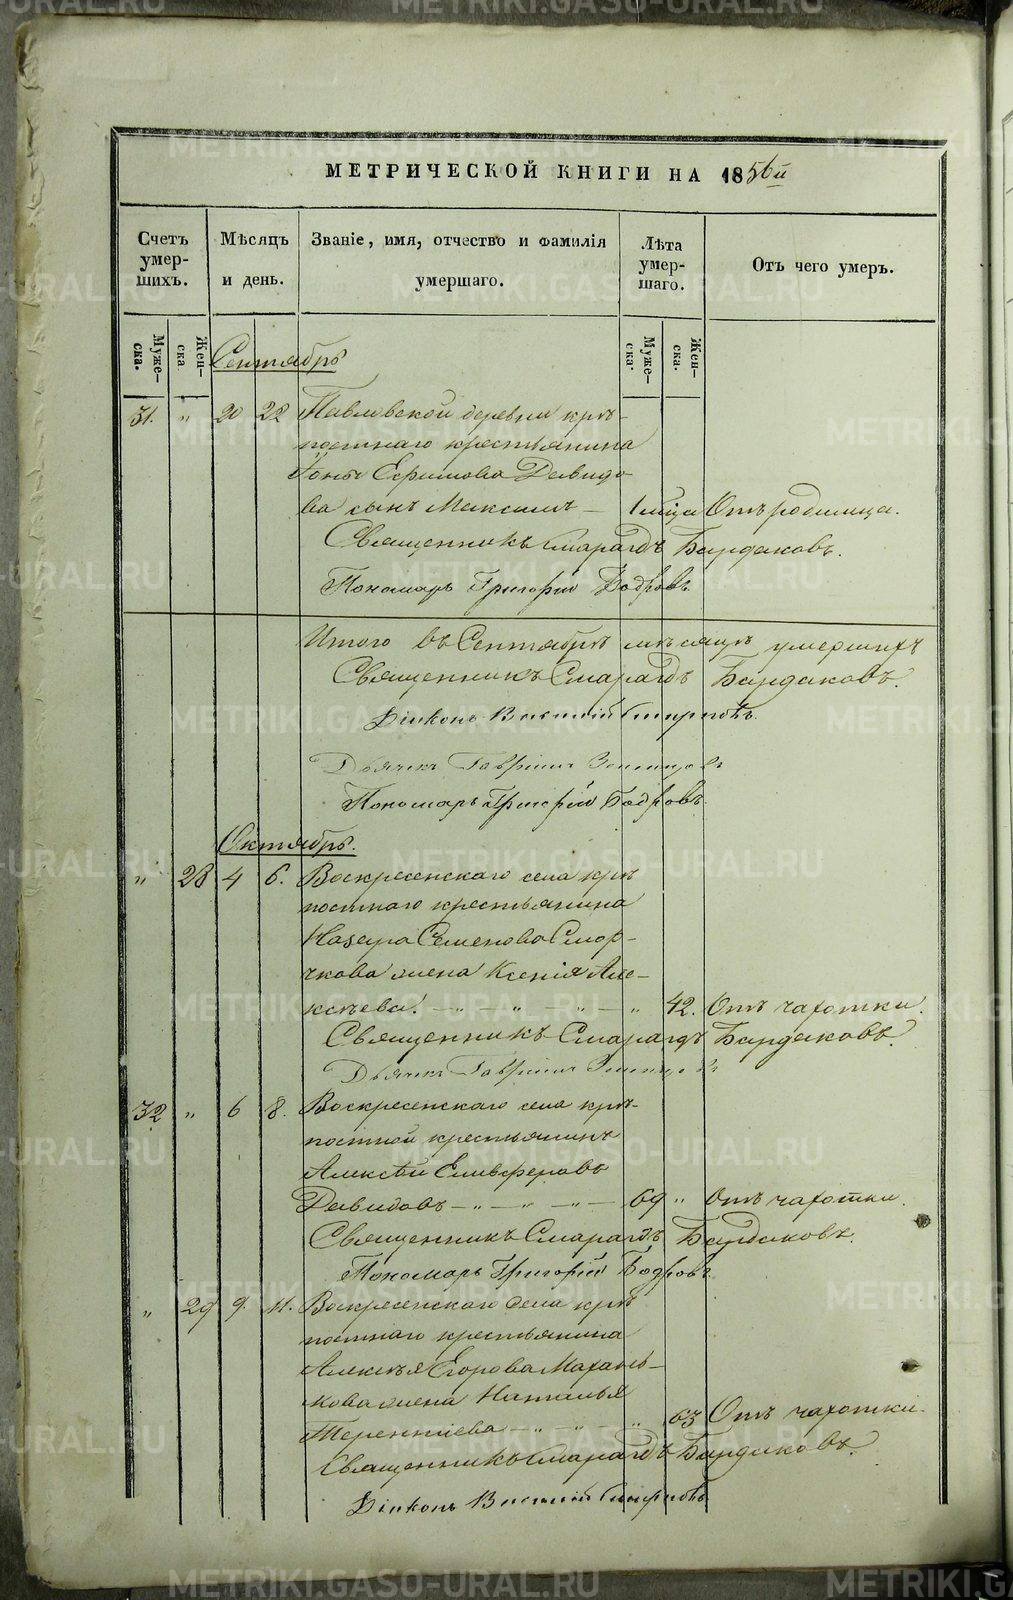 МЕТРИЧЕСКОЙ КНИГИ НА 1856й
Счетъ умер-шихъ. Мѣсяцъ и день. Званіе, имя, отчество и фамилія умершаго. Лѣта умер-шаго. Отъ чего умеръ.
Муже-ска. Жен-ска Муже-ска. Жен-ска.
Сентябрь
31. " 20 22 Павловской деревни крѣ-
постнаго крестьянина
Іоны Ефимова Давидо-
ва сынъ Максимъ – 1 мѣца Отъ родимца.
Священникъ Смарагдъ Бардаковъ.
Пономарь Григорій Бодровъ.
Итого въ Сентябрѣ мѣсяцѣ умершихъ
Священникъ Смарагдъ Бардаковъ.
Діаконъ Василій Смирновъ.
Дьячекъ Гавріилъ
Пономарь Григорій Бодровъ.
Октябрь.
" 28 4 6. Воскресенскаго села крѣ
постнаго крестьянина
Назара Семенова Смор-
чкова жена Ксенія Але-
ксѣева. – " – " – " – " 42. Отъ чахотки.
Священникъ Смарагдъ Бардаковъ.
Дьячекъ Гавріилъ
32 " 6 8. Воскресенскаго села крѣ-
постной крестьянинъ
Алексѣй Елевферовъ
Давидовъ – " – " – " – 69 " Отъ чахотки.
Священникъ Смарагдъ Бардаковъ.
Пономарь Григорій Бодровъ.
" 29 9. 11. Воскресенскаго села крѣ
постнаго крестьянина
Алексѣя Егорова Махань-
кова жена Наталья
Терентіева – " – " – " 63 Отъ чахотки.
Священникъ Смарагдъ Бардаковъ.
Діаконъ Василій Смирновъ
METRIKI.GASO-URAL.RU